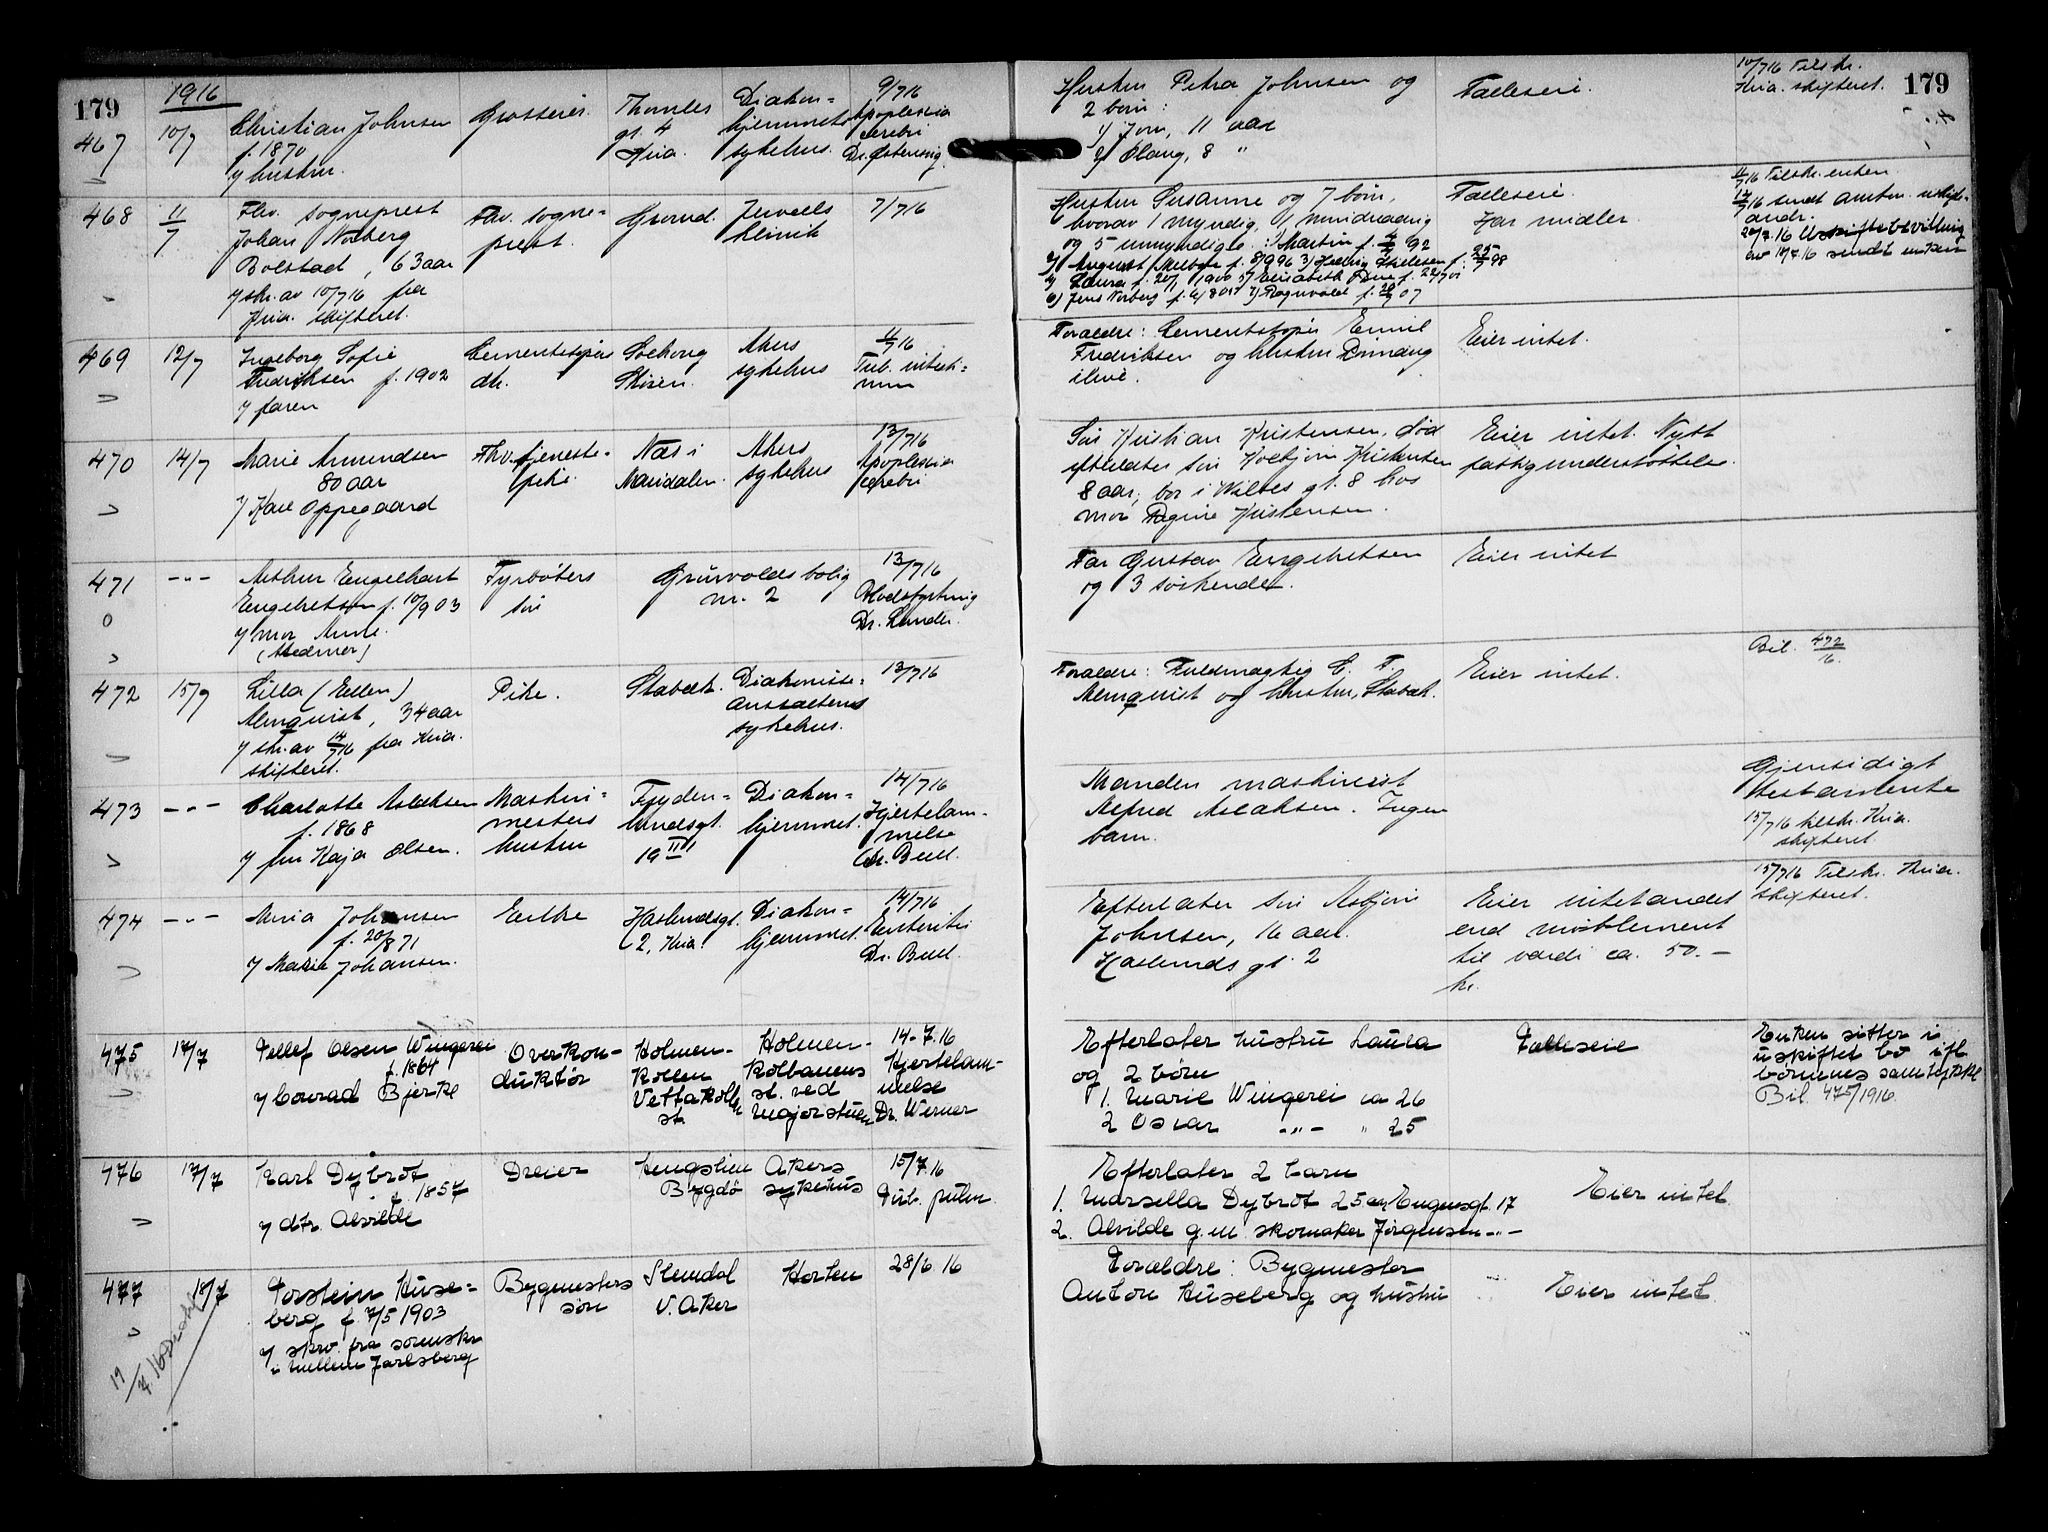 179
1916
467
10/7
Christian Johnsen
f. 1870
v/ hustru.
Grosserer.
Thomles
gt. 4
Kria.
Diakon=
hjemmets
sykehus.
9/7 16
Apoplexia
cerebri
Hustru Petra Johnsen og
2 børn:
1/ Jorn, 11 aar
2/ Olaug, 8 "
Fælleseie.
10/7 16 Tilskr.
Kria. skifteret.
179
468
11/7
Fhv. sogneprest
Johan Norberg
Bolstad, 63 aar
v/ skr. av 10/7 16 fra
Kria. skifteret.
Fhv. sogne=
prest.
Grorud.
Jervells
klinik
7/7 16
Hustru Susanne og 7 børn,
hvorav 1 myndig, 1 mindreaarig
og 5 umyndige: 1) Martin f. 92
2) August f. 8/9 96 3) Hedvig f. 98
4) Laura f. 1900 5) Elisabeth f. 22/7 01
6) Jens Norberg f. 7) Ragnvald f. 07
Fælleseie.
Har midler.
11/7 16 Tilskr. enken
14/7 16 sendt amtm.
andr.
20/7 16 Uskiftebevilling
av 19/7 16 sendt enken
469
12/7
Ingeborg Sofie
Fredriksen f. 1902
v/ faren
Cementstøpers
dtr.
Solhaug
Skøien.
Akers
sykehus
11/7 16
Tub. intesti=
num
Forældre: Cementstøper Emil
Fredriksen og hustru
Eier intet.
470
14/7
Marie Amundsen
80 aar
v/ Kare Oppegaard
Fhv. tjeneste=
pike.
Næs i
Maridalen.
Akers
sykehus
13/7 16
Apoplexia
cerebri
Søn Kristian Kristensen, død
efterlater søn Kolbjørn Kristensen
8 aar, bor i Wilses gt. 8 hos
mor Ragna Kristensen.
Eier intet. Nytt
fattigunderstøttelse.
471
-"-
Arthur Engelhart
Engebretsen f. 10/9 03
v/ mor Anne.
(stedmor)
Fyrbøters
søn
Grünvolds bolig
nr. 2
13/7 16
Blodstyrtning
Dr. Lunde.
Far Gustav Engebretsen
og 3 søskende.
Eier intet
472
15/7
Lilla (Ellen)
Almquist, 34 aar
v/ skr. av 14/7 16 fra Kria.
skifteret.
Pike.
Stabæk.
Diakonisse=
anstaltens
sykehus.
13/7 16
Forældre: Fuldmægtig C. F.
Almquist og hustru, Stabæk.
Eier intet.
Bil. 472/16.
473
-"-
Charlotte Aslaksen
f. 1868
v/ fru Kaja Olsen.
Maskin=
mesters
hustru
Fryden=
lundsgt.
19 III
Diakon=
hjemmet.
14/7 16
Hjertelam=
melse
Dr. Bull.
Manden maskinist
Alfred Aslaksen. Ingen
barn.
Gjensidigt
testamente
15/7 16 tilskr. Kria.
skifteret.
474
-"-
Maria Johansen
f. 20/8 71
v/ Marie Johansen.
Enke
Haslundsgt.
2, Kria.
Diakon=
hjemmet.
14/7 16
Enteritis
Dr. Bull.
Efterlater søn Asbjørn
Johnsen, 16 aar.
Haslunds gt. 2
Eier intet andet
end møblement
til værdi ca. 50.-
kr.
15/7 16 Tilskr. Kria.
skifteret.
475
17/7
Tellef Olsen Wingerei
f. 1864
v/ Conrad Bjerke
Overkon-
duktør
Holmen-
kollen
Vettakollen
st.
Holmen-
kolbanens
st. ved
Majorstuen
14-7.16
Hjertelam-
melse
Dr. Werner
Efterlater hustru Laura
og 2 børn
1. Marie Wingerei ca 26
2 Oscar -"- " 25
Fælleseie
Enken sitter i
uskiftet bo ifl.
børnenes samtykke
Bil. 475/1916.
476
17/7
Karl Dybrot
f. 1857
v/ dtr. Alvilde
Dreier
Kengslien
Bygdø
Akers
sykehus
15/7.16
Tub. pulm.
Efterlater 2 barn
1. Marsella Dybrot 25 aar, Eugensgt. 17
2. Alvilde g.m. skomaker Jørgensen -"-
Eier intet.
477
18/7
Torstein Huse=
berg f. 7/5 1903
v/ skriv. fra sorenskr.
i mellem Jarlsberg
Bygmesters
søn
Slemdal
V. Aker
Horten
28/6 16
Forældre: Bygmester
Anton Huseberg og hustru
Eier intet.